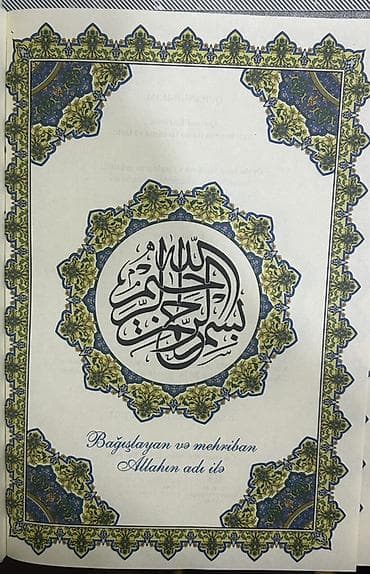 بسم الله الرحمن الرحيم
Bağışlayan və mehriban
Allahın adı ilə